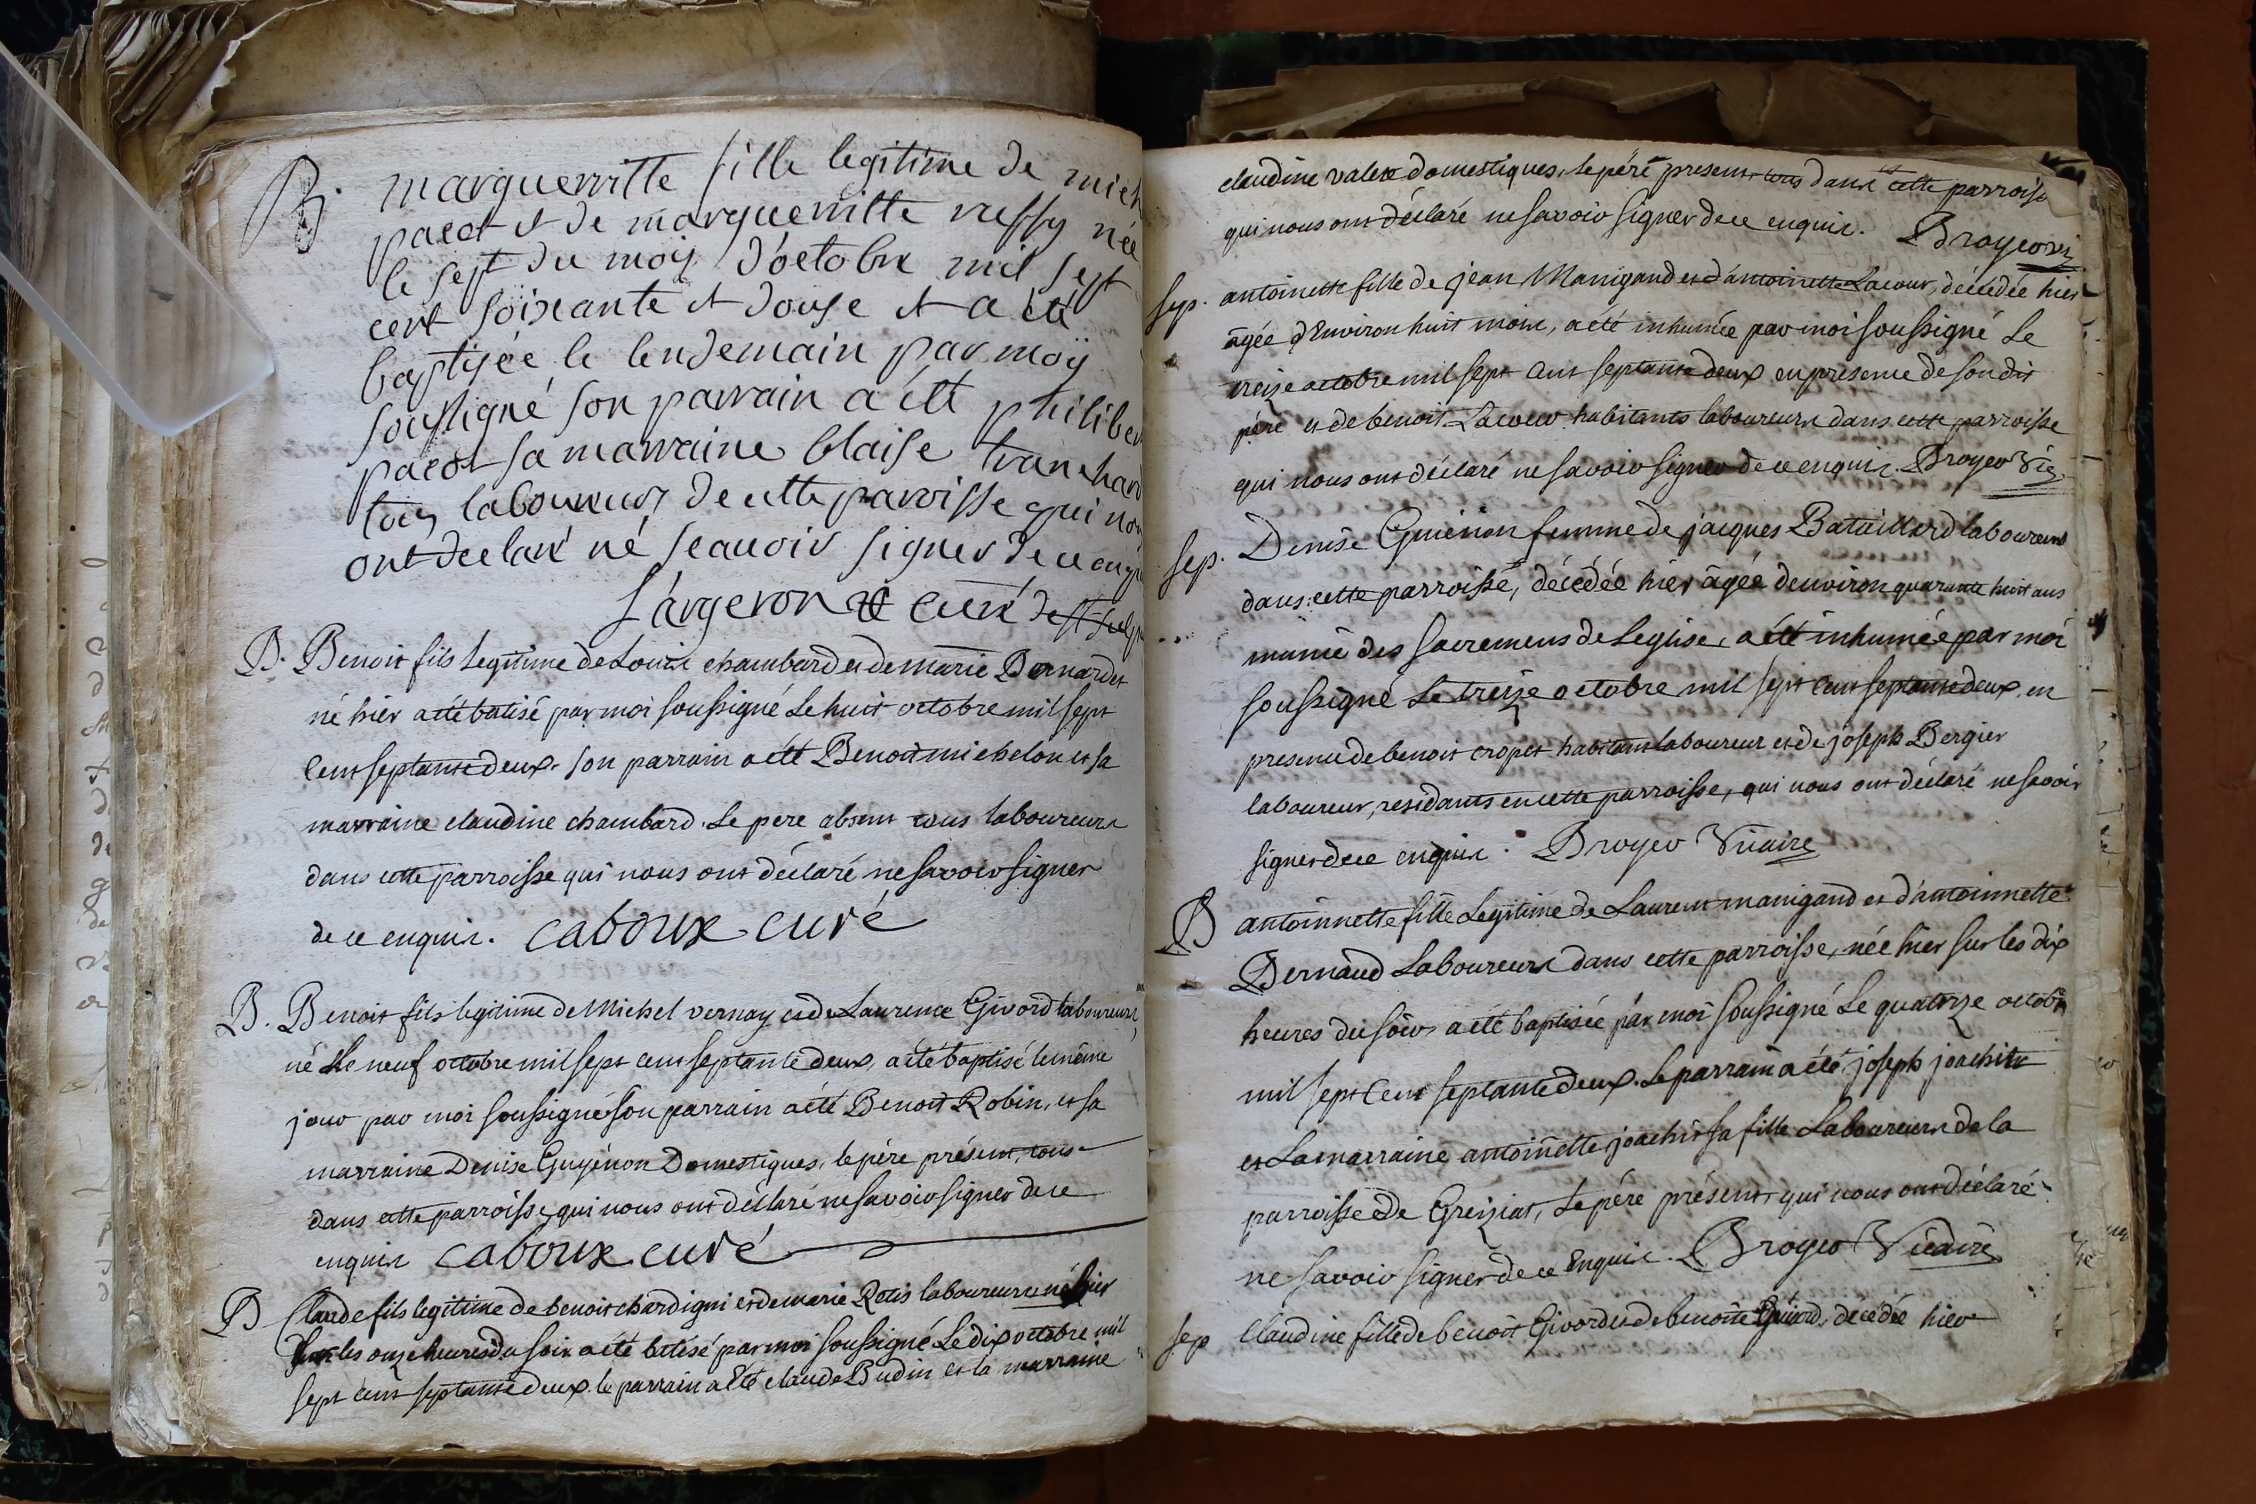 B. marguerritte fille legitime de mich
pacot et de marguerritte ruffy née
le sept du moy d'octobre mil sept
cent soixante et douse et a été
baptisée le lendemain par moÿ
soussigné son parrain a été philiber
pacot sa marraine blaise tranchan
tous laboureurs de cette paroisse qui nou
ont declaré né scauoir signer de ce enqu
fargeron curé de st sulp
B. Benoit fils Legitime de Louis chambard et de marie Bernardet
né hier a été batisé par moi soussigné Le huit octobre mil sept
Cent septante deux. son parrain a été Benoit michelon et sa
marraine claudine chambard. Le pere absent tous laboureurs
dans cette parroisse qui nous ont déclaré ne savoir signer
de ce enquis. caboux curé
B. Benoit fils legitime de Michel vernay et de Laurence Givord laboureurs
né Le neuf octobre mil sept cent septante deux, a été baptisé le même
jour par moi soussigné son parrain a été Benoit Robin, et sa
marraine Denise Guyénon Domestiques, le père présent, tous
dans cette parroisse qui nous ont déclaré ne savoir signer de ce
enquis caboux curé
B Claude fils legitime de benoit chardigni et de marie Rotis laboureurs né hier
sur les onze heures du soir a été batisé par moi soussigné Le dix octobre mil
sept cent septante deux. le parrain a été claude Budin et la marraine
claudine valex domestiques, le père present tous dans cette parroisse
qui nous ont déclaré ne savoir signer de ce enquis. Broyer vi
sep. antoinette fille de jean Manigand et d'antoinette Lacour, décédée hier
âgée d'Environ huit mois, a été inhumée par moi soussigné Le
treize octobre mil sept Cent septante deux en presence de son dit
père et de benoit Lacour habitants laboureurs dans cette parroisse
qui nous ont déclaré ne savoir signer de ce enquis. Broyer Vic
sep. Denise Guiénon femme de jacques Bataillard laboureur
dans cette parroisse, décédée hier âgée d'environ quarante huit ans
munie des sacremens de Leglise, a été inhumée par moi
soussigné Le treize octobre mil sept Cent septante deux en
presence de benoit cropet habitant laboureur et de joseph Bergier
laboureur, residants en cette parroisse, qui nous ont déclaré ne savoir
signer de ce enquis. Broyer Vicaire
B antoinnette fille Legitime de Laurent manigand et d'antoinnette
Bernaud Laboureurs dans cette parroisse, née hier sur les dix
heures du soir a été baptisée par moi soussigné Le quatorze octobr
mil sept Cent septante deux. Le parrain a été joseph joachin
et La marraine antoinette joachin sa fille Laboureurs de la
parroisse de Greiziat, Le père présent, qui nous ont déclaré
ne savoir signer de ce Enquis. Broyer Vicaire
sep Claudine fille de benoit Givord et de benoite Guivord, décédée hier